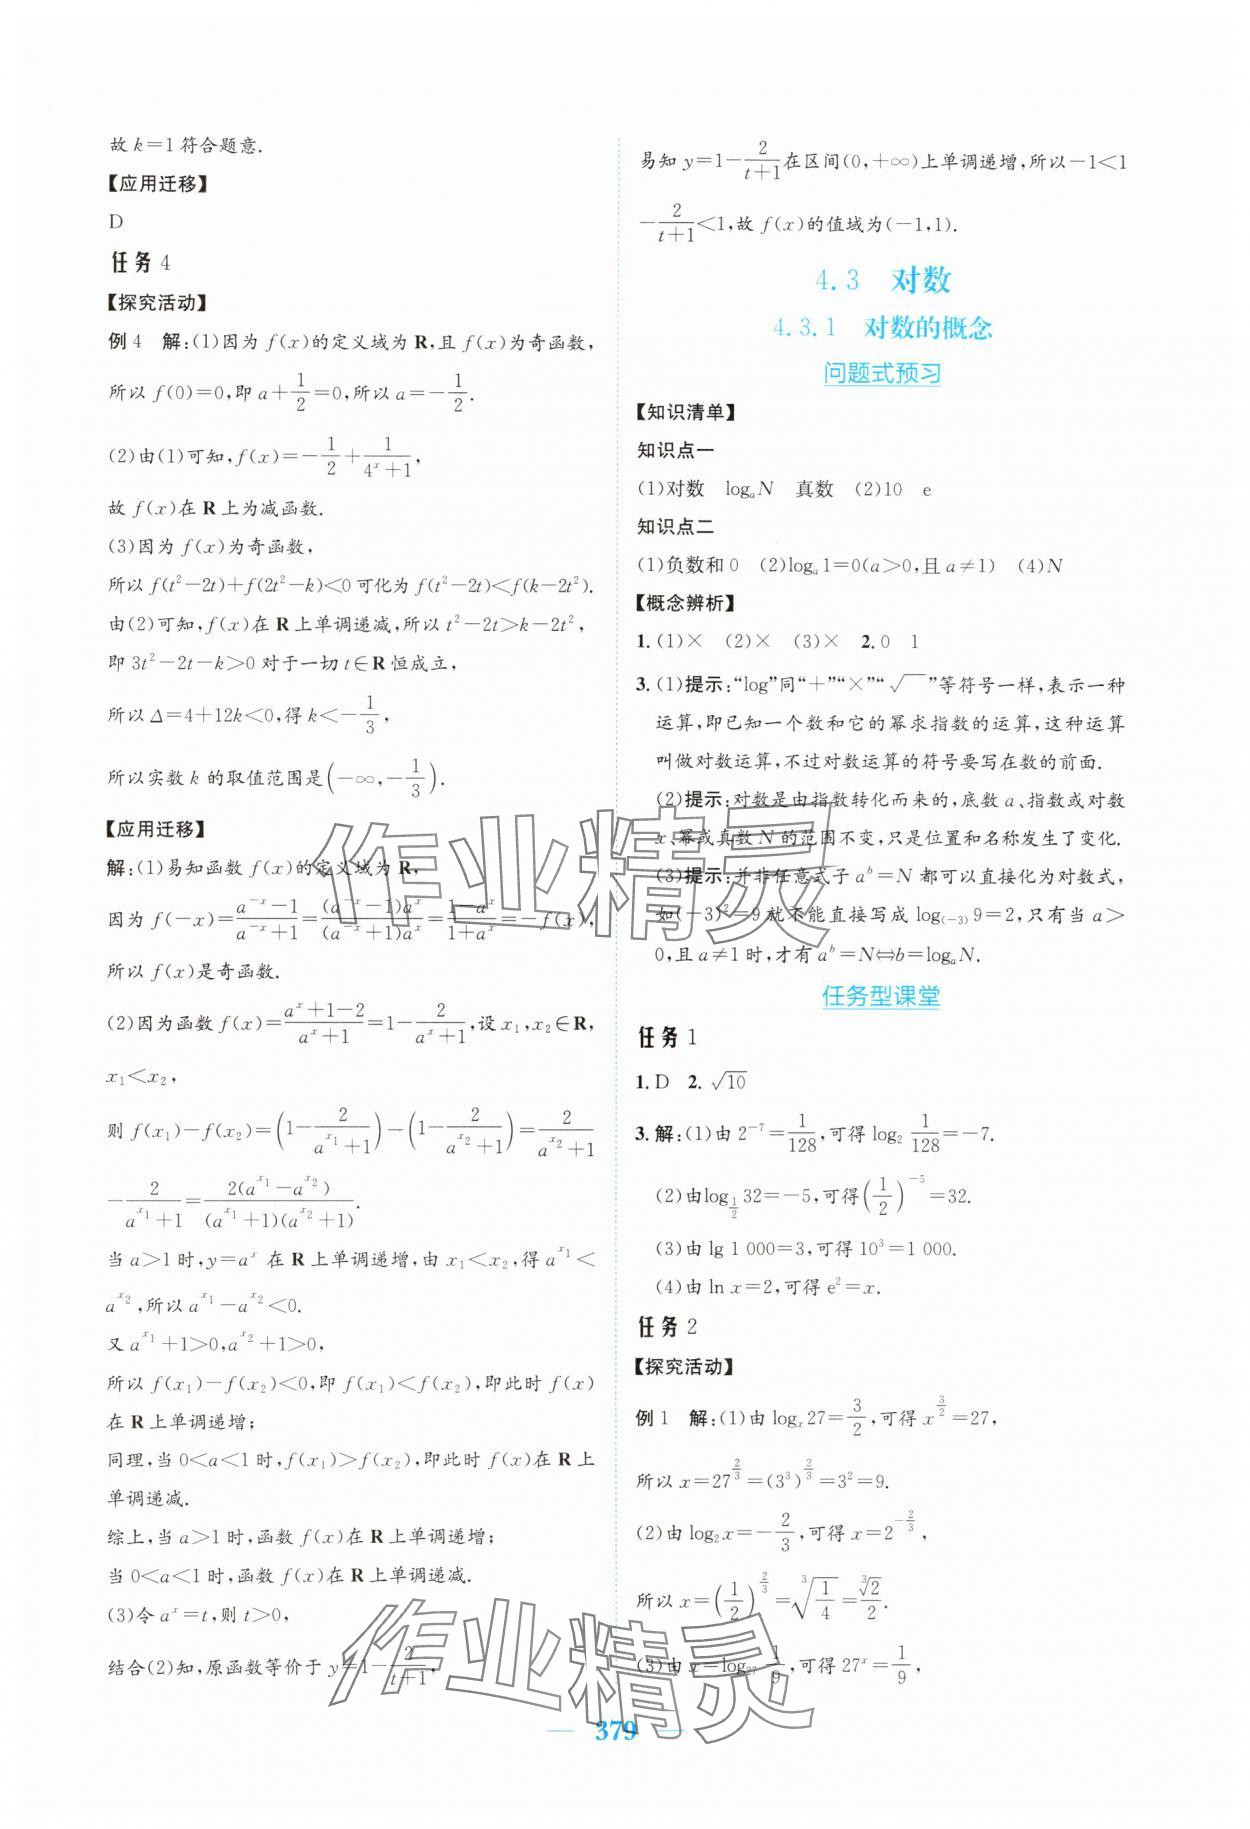 故 k=1 符合题意.
【应用迁移】
D
任务 4
【探究活动】
例 4　解:(1)因为 f(x)的定义域为 R,且 f(x)为奇函数,
所以 f(0)=0,即 a+1/2=0,所以 a=-1/2.
(2)由(1)可知,f(x)=-1/2+1/(4^x+1),
故 f(x)在 R 上为减函数.
(3)因为 f(x)为奇函数,
所以 f(t²-2t)+f(2t²-k)<0 可化为 f(t²-2t)<f(k-2t²).
由(2)可知,f(x)在 R 上单调递减,所以 t²-2t>k-2t²,
即 3t²-2t-k>0 对于一切 t∈R 恒成立,
所以 Δ=4+12k<0,得 k<-1/3,
所以实数 k 的取值范围是(-∞,-1/3).
【应用迁移】
解:(1)易知函数 f(x)的定义域为 R,
因为 f(-x)=(a^(-x)-1)/(a^(-x)+1)=((a^(-x)-1)a^x)/((a^(-x)+1)a^x)=(1-a^x)/(1+a^x)=-f(x),
所以 f(x)是奇函数.
(2)因为函数 f(x)=(a^x+1-2)/(a^x+1)=1-2/(a^x+1),设 x₁,x₂∈R,
x₁<x₂,
则 f(x₁)-f(x₂)=(1-2/(a^(x₁)+1))-(1-2/(a^(x₂)+1))=2/(a^(x₂)+1)
-2/(a^(x₁)+1)=2(a^(x₁)-a^(x₂))/((a^(x₁)+1)(a^(x₂)+1)).
当 a>1 时,y=a^x 在 R 上单调递增,由 x₁<x₂,得 a^(x₁)<
a^(x₂),所以 a^(x₁)-a^(x₂)<0.
又 a^(x₁)+1>0,a^(x₂)+1>0,
所以 f(x₁)-f(x₂)<0,即 f(x₁)<f(x₂),即此时 f(x)
在 R 上单调递增;
同理,当 0<a<1 时,f(x₁)>f(x₂),即此时 f(x)在 R 上
单调递减.
综上,当 a>1 时,函数 f(x)在 R 上单调递增;
当 0<a<1 时,函数 f(x)在 R 上单调递减.
(3)令 a^x=t,则 t>0,
结合(2)知,原函数等价于 y=1-2/(t+1),
易知 y=1-2/(t+1)在区间(0,+∞)上单调递增,所以-1<1
-2/(t+1)<1,故 f(x)的值域为(-1,1).
4.3　对数
4.3.1　对数的概念
问题式预习
【知识清单】
知识点一
(1)对数　logₐN　真数　(2)10　e
知识点二
(1)负数和 0　(2)logₐ1=0(a>0,且 a≠1)　(4)N
【概念辨析】
1.(1)×　(2)×　(3)×　2.0　1
3.(1)提示:“log”同“+”“×”“√‾”等符号一样,表示一种
运算,即已知一个数和它的幂求指数的运算,这种运算
叫做对数运算,不过对数运算的符号要写在数的前面.
(2)提示:对数是由指数转化而来的,底数 a、指数或对数
x、幂或真数 N 的范围不变,只是位置和名称发生了变化.
(3)提示:并非任意式子 a^b=N 都可以直接化为对数式,
如(-3)²=9 就不能直接写成 log₍₋₃₎9=2,只有当 a>
0,且 a≠1 时,才有 a^b=N⇔b=logₐN.
任务型课堂
任务 1
1.D　2.√10
3.解:(1)由 2⁻⁷=1/128,可得 log₂ 1/128=-7.
(2)由 log_(1/2) 32=-5,可得(1/2)⁻⁵=32.
(3)由 lg 1 000=3,可得 10³=1 000.
(4)由 ln x=2,可得 e²=x.
任务 2
【探究活动】
例 1　解:(1)由 logₓ27=3/2,可得 x^(3/2)=27,
所以 x=27^(2/3)=(3³)^(2/3)=3²=9.
(2)由 log₂x=-2/3,可得 x=2^(-2/3),
所以 x=(1/2)^(2/3)=∛(1/4)=∛2/2.
(3)由 x=log₂₇ 1/9,可得 27^x=1/9,
379
作业精灵
作业精灵